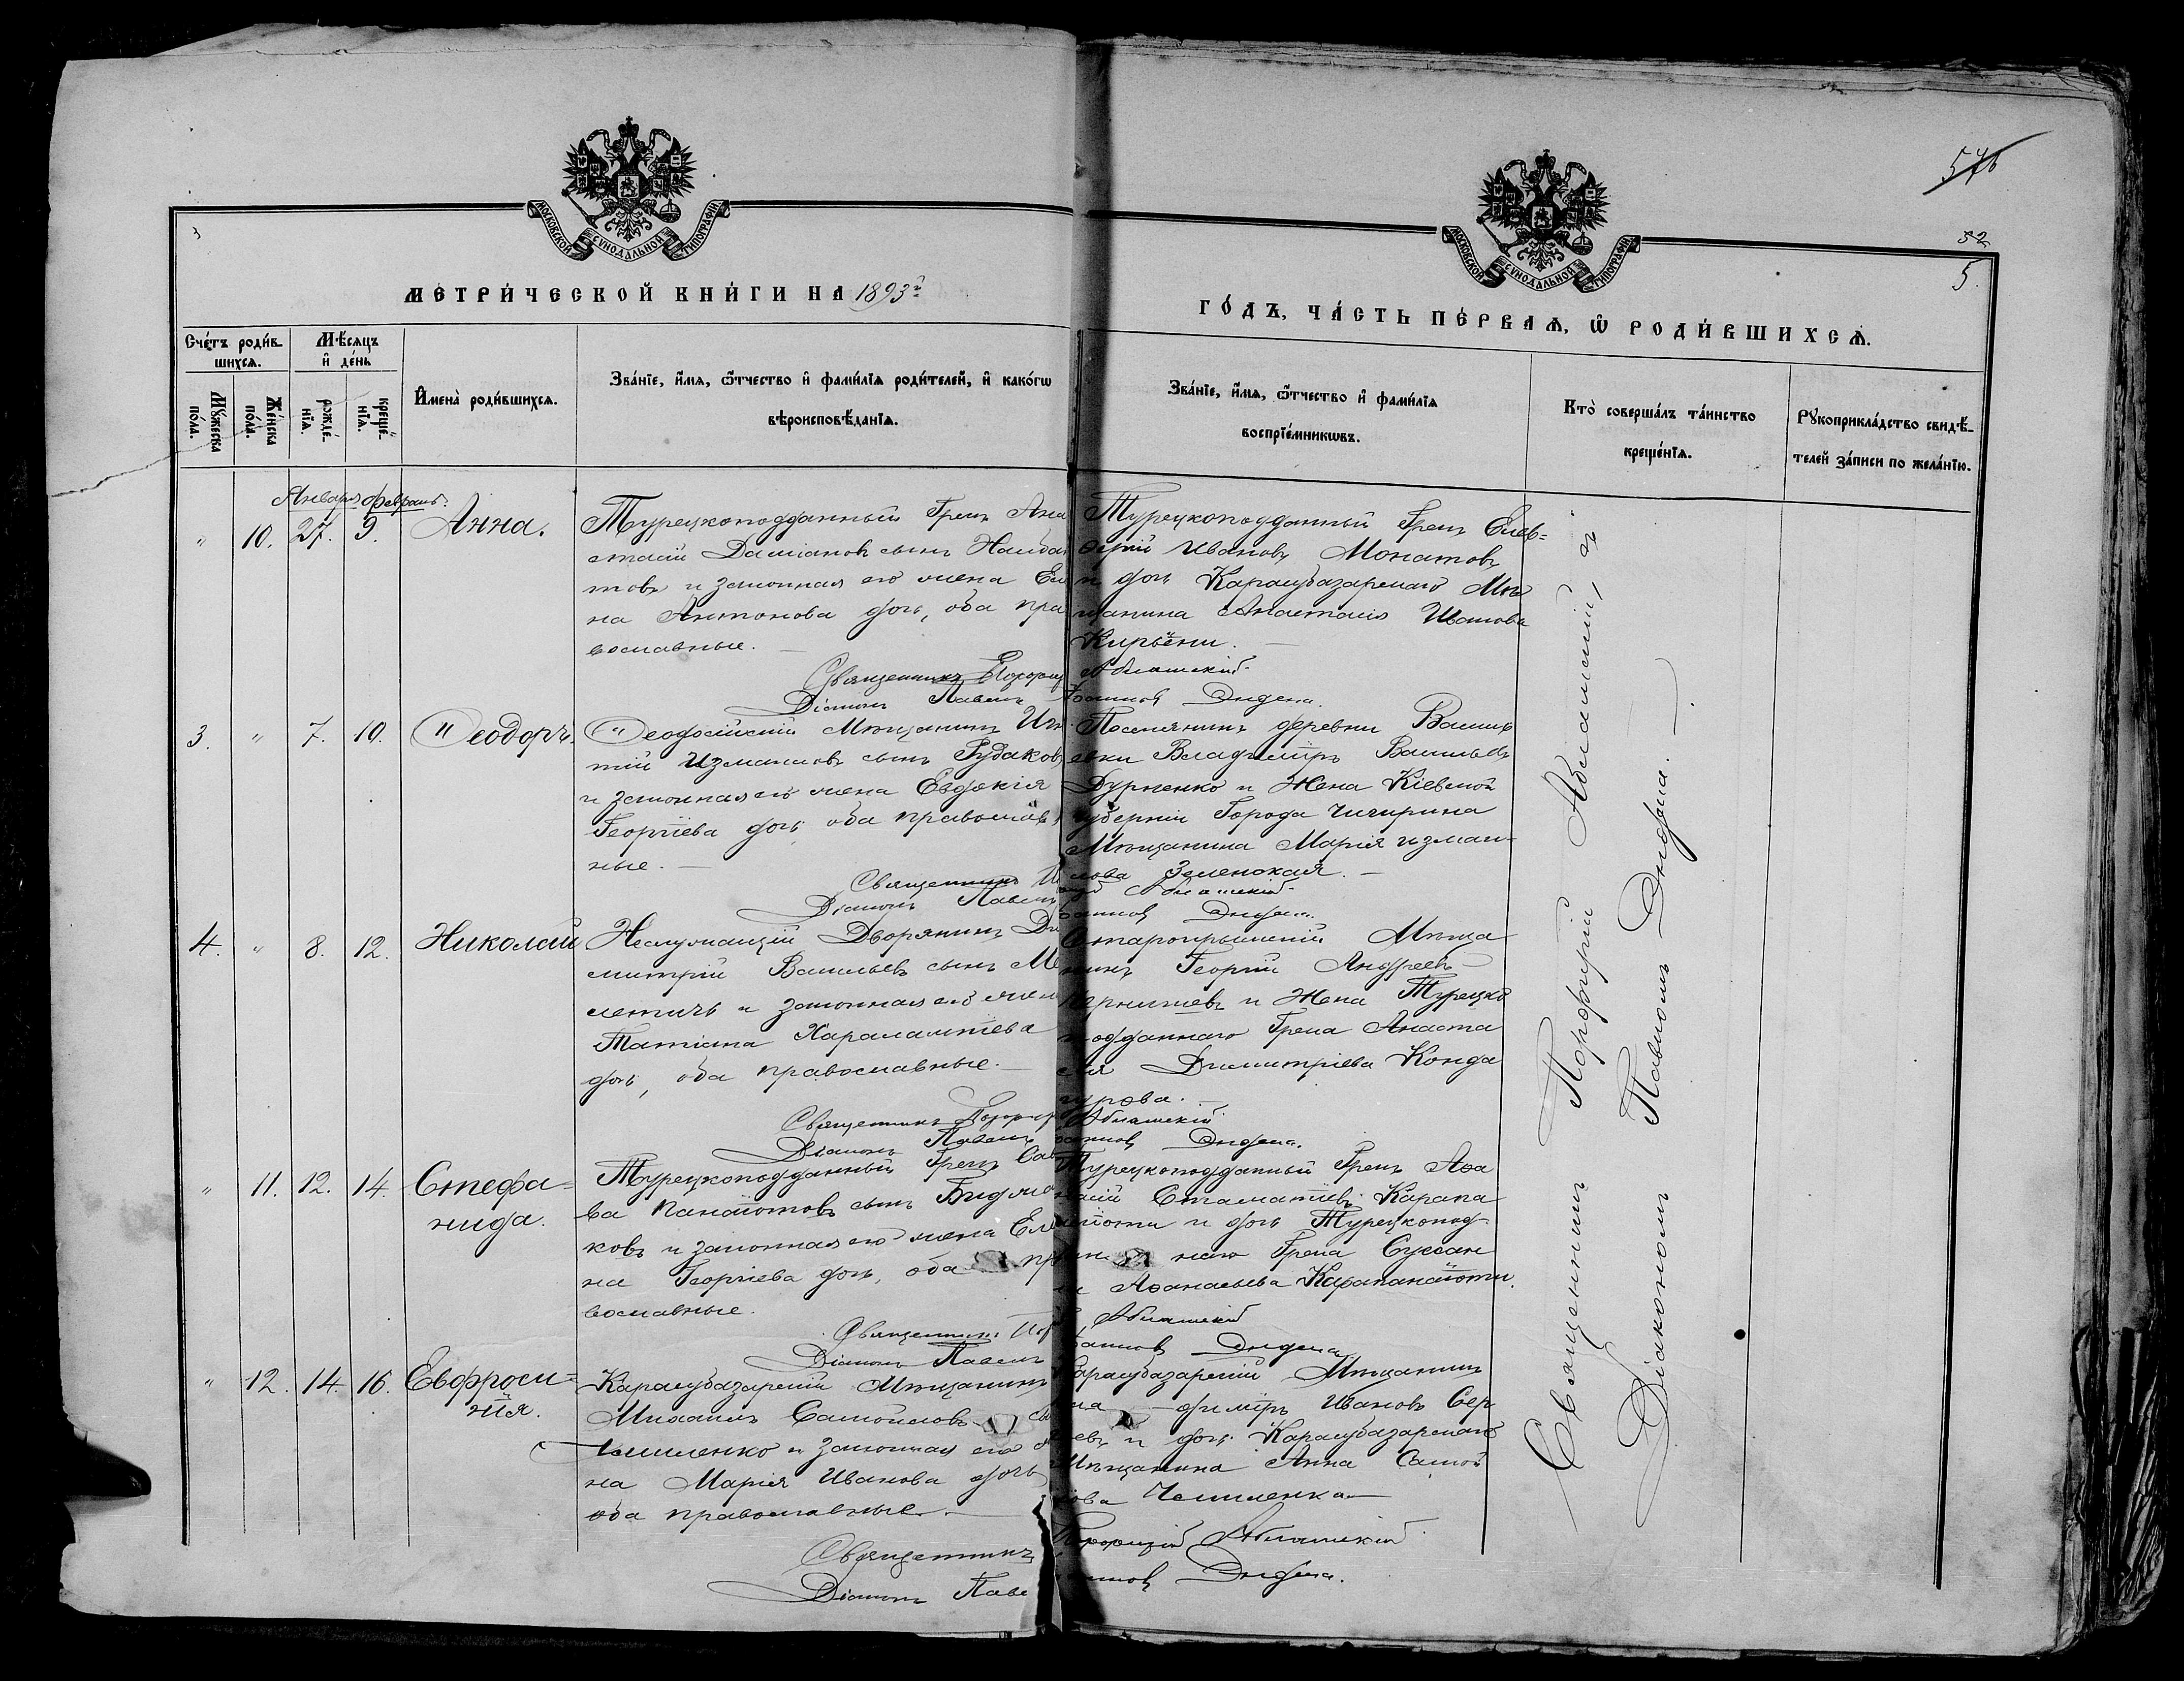 546
52
5.
МОСКОВСКОЙ СѴНОДАЛЬНОЙ ТИПОГРАФІИ
МОСКОВСКОЙ СѴНОДАЛЬНОЙ ТИПОГРАФІИ
МЕТРИ́ЧЕСКОЙ КНИ́ГИ НА 1893й
ГО́ДЪ, ЧА́СТЬ ПЕ́РВАѦ, Ѽ РОДИ́ВШИХСѦ.
Сче́тъ роди́в-
шихсѧ.
Мꙋ́жеска
по́ла.
Же́нска
по́ла.
Мѣ́сѧцъ
и҆ де́нь
рожде́-
нїѧ.
креще́-
нїѧ.
И҆мена̀ роди́вшихсѧ.
Зва́нїе, и҆́мѧ, ѻ҆́тчество и҆ фами́лїѧ роди́телей, и҆ како́гѡ
вѣроисповѣ́данїѧ.
Зва́нїе, и҆́мѧ, ѻ҆́тчество и҆ фами́лїѧ
воспрїе́мникѡвъ.
Кто̀ соверша́лъ та́инство
креще́нїѧ.
Рꙋкоприкла́дство свидѣ́-
телей за́писи по жела́нїю.
Января Февраль.
" 10. 27. 9. Анна.
Турецкоподданный Грекъ Ана
стасій Даміановъ сынъ
товъ и законная его жена Еле
на Антонова дочь, оба пра
вославные. —
Турецкоподданный Грекъ Елев-
ѳерій Ивановъ Монатовъ
и дочь Карасубазарскаго Мѣ
щанина Анастасія Иванова
Кирьёни. —
Священникъ Порфирій Абламскій.
Діаконъ Павелъ Іоанновъ
3. " 7. 10. Ѳеодоръ.
Ѳеодосійскій Мѣщанинъ Игна
тій Измаиловъ сынъ Рудаковъ
и законная его жена Евдокія
Георгіева дочь, оба православ
ные. —
Поселянинъ деревни Василь
евки Владиміръ Васильевъ
Дурненко и Жена Кіевской
губерніи Города Чигирина
Мѣщанина Марія Измаи-
лова Зеленская. —
Священникъ Абламскій.
Діаконъ Павелъ Іоанновъ
4. " 8. 12. Николай
Неслужащій Дворянинъ Ди
митрій Васильевъ сынъ Ме
летичъ и законная его жена
Татіана Харалампіева
дочь, оба православные. —
Старокрымскій Мѣща
нинъ Георгій Андреевъ
и Жена Турецко
подданнаго Грека Анаста
сія Димитріева Конда
гурова. —
Священникъ Порфирій Абламскій
Діаконъ Павелъ Іоанновъ
" 11. 12. 14. Стефа-
нида.
Турецкоподданный Грекъ Сав
ва Панаіотовъ сынъ
ковъ и законная его жена Еле
на Георгіева дочь, оба пра
вославные.
Турецкоподданый Грекъ Аѳа
насій Стаматіевъ Карапа
наіоти и дочь Турецкопод-
наго Грека
Аѳанасьева Карапанаіоти.
Священникъ Абламскій
Діаконъ Павелъ Іоанновъ
" 12. 14. 16. Евфроси-
нія.
Карасубазарскій Мѣщанинъ
Михаилъ Самойловъ сы
и законная его же
на Марія Иванова дочь
оба православные. —
Карасубазарскій Мѣщанинъ
диміръ Ивановъ Сер
и дочь Карасубазарскаго
Мѣщанина Анна Самой
лова —
Священникъ Порфирій Абламскій
Діаконъ Павелъ Іоанновъ
Священникъ Порфирій Абламскій, и
Діакономъ Павломъ